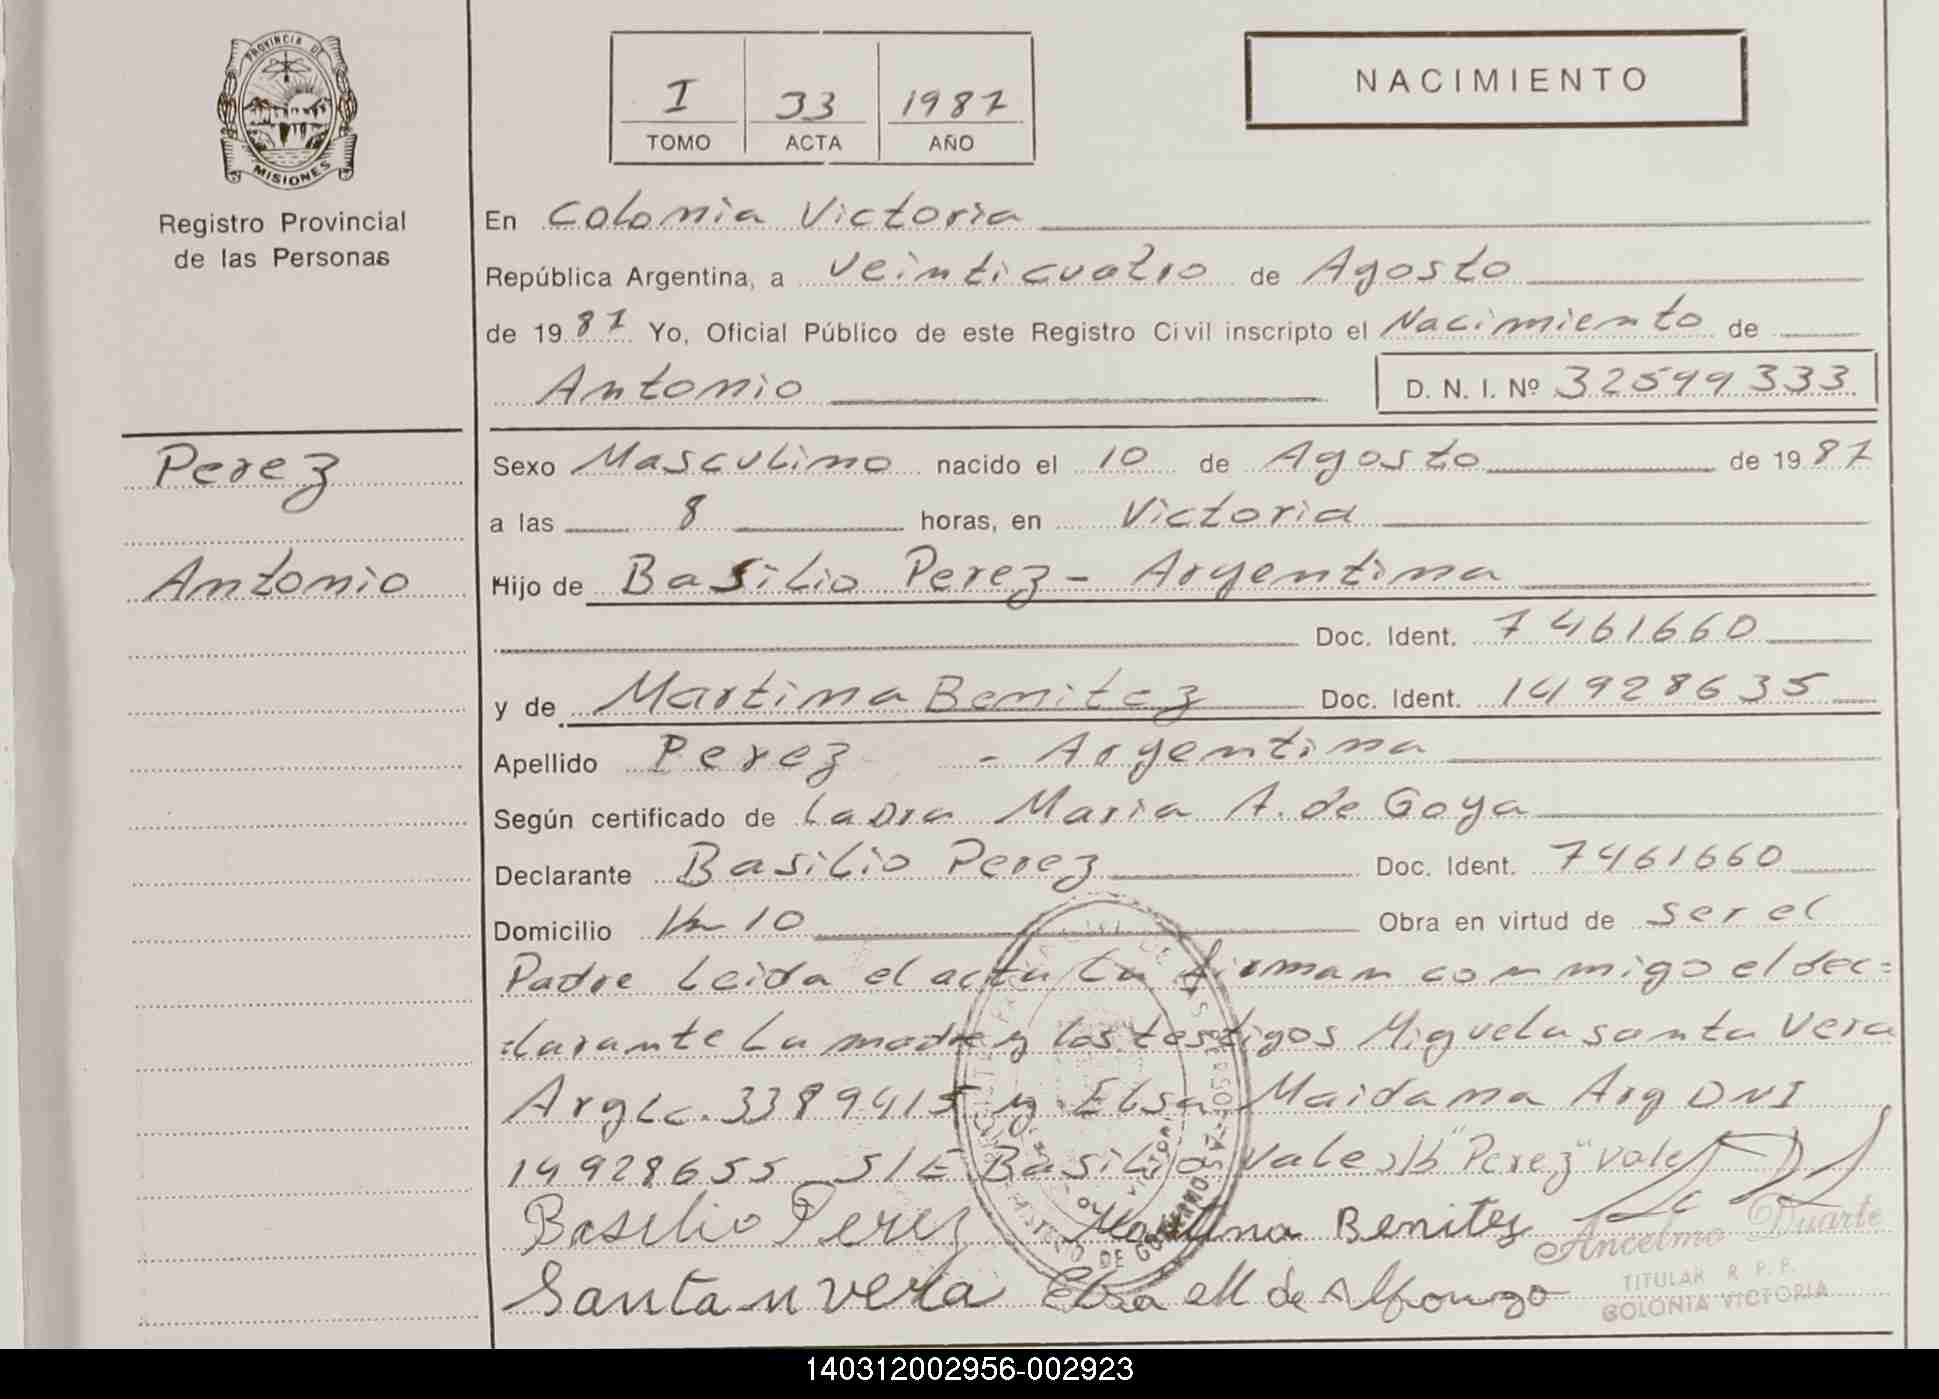 PROVINCIA DE
MISIONES
Registro Provincial
de las Personas
I 33 1987
TOMO ACTA AÑO
NACIMIENTO
En Colonia Victoria
República Argentina, a veinticuatro de Agosto
de 1987 Yo, Oficial Público de este Registro Civil inscripto el Nacimiento de
Antonio D. N. I. Nº 32599333
Perez
Antonio
Sexo Masculino nacido el 10 de Agosto de 1987
a las 8 horas, en Victoria
Hijo de Basilio Perez - Argentina
Doc. Ident. 7461660
y de Martina Benitez Doc. Ident. 14928635
Apellido Perez - Argentina
Según certificado de La Dra Maria A. de Goya
Declarante Basilio Perez Doc. Ident. 7461660
Domicilio Km 10 Obra en virtud de ser el
Padre Leida el acta La firman conmigo el dec=
larante La madre y los testigos Miguela santa Vera
Arg Lc. 3389415 y Elsa Maidana Arg DNI
14928655 S/E Basilio Vale "Perez" vale
Basilio Perez Martina Benites
Ancelmo Duarte
Santa n vera Elsa M de Alfonzo
TITULAR R. P. P.
COLONIA VICTORIA
140312002956-002923